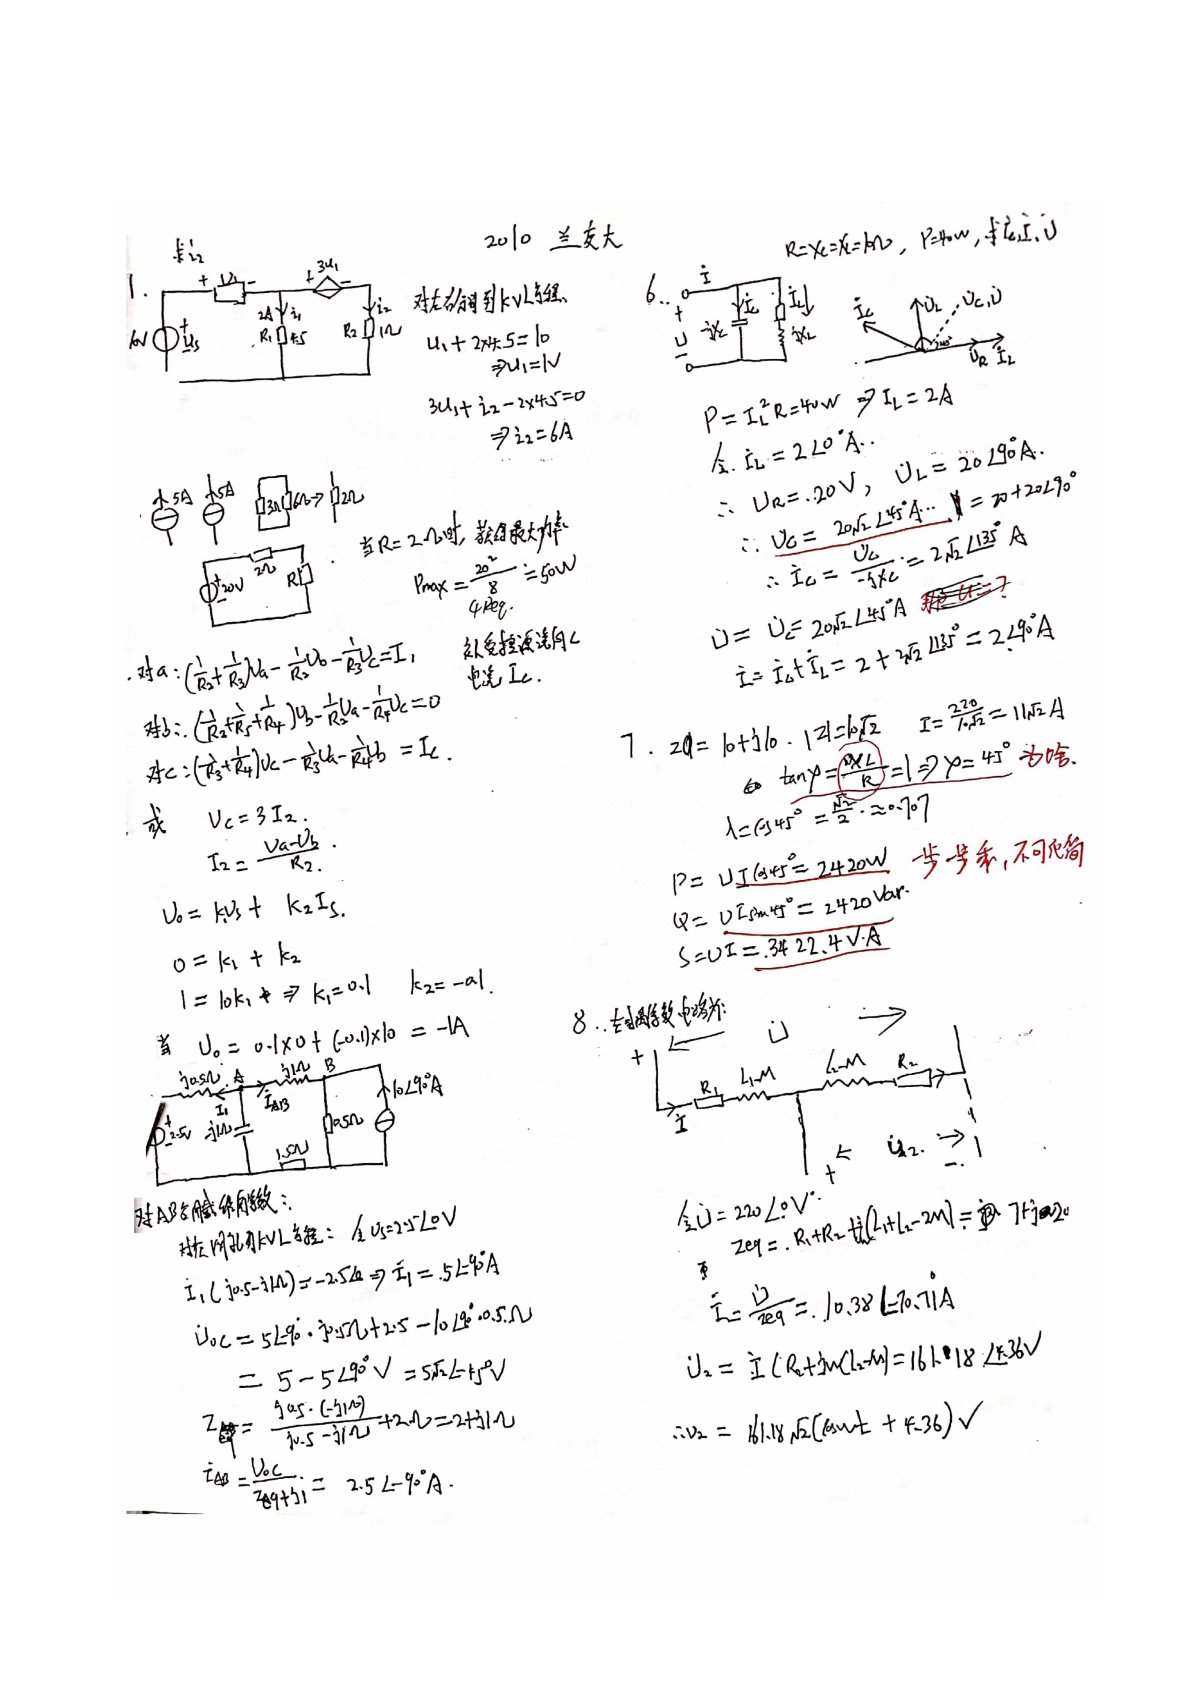 2010 兰交大
求i₂
1.
+ U₁ -
+ 3u₁ -
10V
+ Us -
2A
i₁
R₁ 4.5
i₂
R₂ 1Ω
对左右网列KVL方程
u₁ + 2×4.5 = 10
⇒ u₁ = 1V
3u₁ + i₂ - 2×4.5 = 0
⇒ i₂ = 6A
5A 5A 3Ω 6Ω ⇒ 2Ω
20V 2Ω R
当R = 2Ω时, 获得最大功率
Pmax = 20²/8 = 50W
4Req.
对a: (1/R₂ + 1/R₃)Ua - 1/R₂ Ub - 1/R₃ Uc = I₁
设受控源流向c
电流 Ic.
对b: (1/R₂ + 1/R₅ + 1/R₄)Ub - 1/R₂ Ua - 1/R₄ Uc = 0
对c: (1/R₃ + 1/R₄)Uc - 1/R₃ Ua - 1/R₄ Ub = Ic.
或 Uc = 3I₂.
I₂ = (Ua - Ub)/R₂.
U₀ = k₁Us + k₂Is.
0 = k₁ + k₂
1 = 10k₁ ⇒ k₁ = 0.1 k₂ = -0.1.
当 U₀ = 0.1×0 + (-0.1)×10 = -1A
j0.5Ω A j1Ω B
I₁ İAB
+ 2.5V - -j1Ω 0.5Ω 10∠90°A
1.5Ω
对左网孔列KVL方程: 令Us = 2.5∠0V
İ₁(j0.5 - j1Ω) = -2.5 ⇒ İ₁ = 5∠-90°A
U̇oc = 5∠-90°·j0.5Ω + 2.5 - 10∠90°·0.5Ω
= 5 - 5∠90°V = 5√2∠-45°V
Z = j0.5·(-j1Ω)/(j0.5 - j1Ω) + 2Ω = 2 + j1Ω
İAB = U̇oc/(Zeq + j1) = 2.5∠-90°A.
R = Xc = XL = 10Ω, P = 40W, 求İc, İ, U̇
6.
İ
+ U̇ -
İc İL
jXc jXL
İc U̇L U̇c, U̇
45°
U̇R İL
P = I_L²R = 40W ⇒ I_L = 2A
令 İL = 2∠0°A.
∴ U̇R = 20V, U̇L = 20∠90°A.
∴ U̇c = 20√2∠45°A = 20 + 20∠90°
∴ İc = U̇c/(-jXc) = 2√2∠135°A
U̇ = U̇c = 20√2∠45°A
İ = İc + İL = 2 + 2√2∠135° = 2∠90°A
7. Z = 10 + j10. |Z| = 10√2 I = 220/10√2 = 11√2A
tanφ = XL/R = 1 ⇒ φ = 45° 为啥.
λ = cos45° = √2/2 ≈ 0.707
P = UIcos45° = 2420W 一步一步乘, 不可化简
Q = UIsin45° = 2420Var.
S = UI = 3422.4V·A
8. 去耦等效电路为:
U̇
+
R₁ L₁-M L₂-M R₂
İ
U̇₂.
+ -
令U̇ = 220∠0°V.
Zeq = R₁ + R₂ + j(L₁ + L₂ - 2M) = 7 + j20
İ = U̇/Zeq = 10.38∠-70.71°A
U̇₂ = İ(R₂ + jω(L₂-M) = 161.18∠4.36V
∴ u₂ = 161.18√2(cosωt + 4.36)V